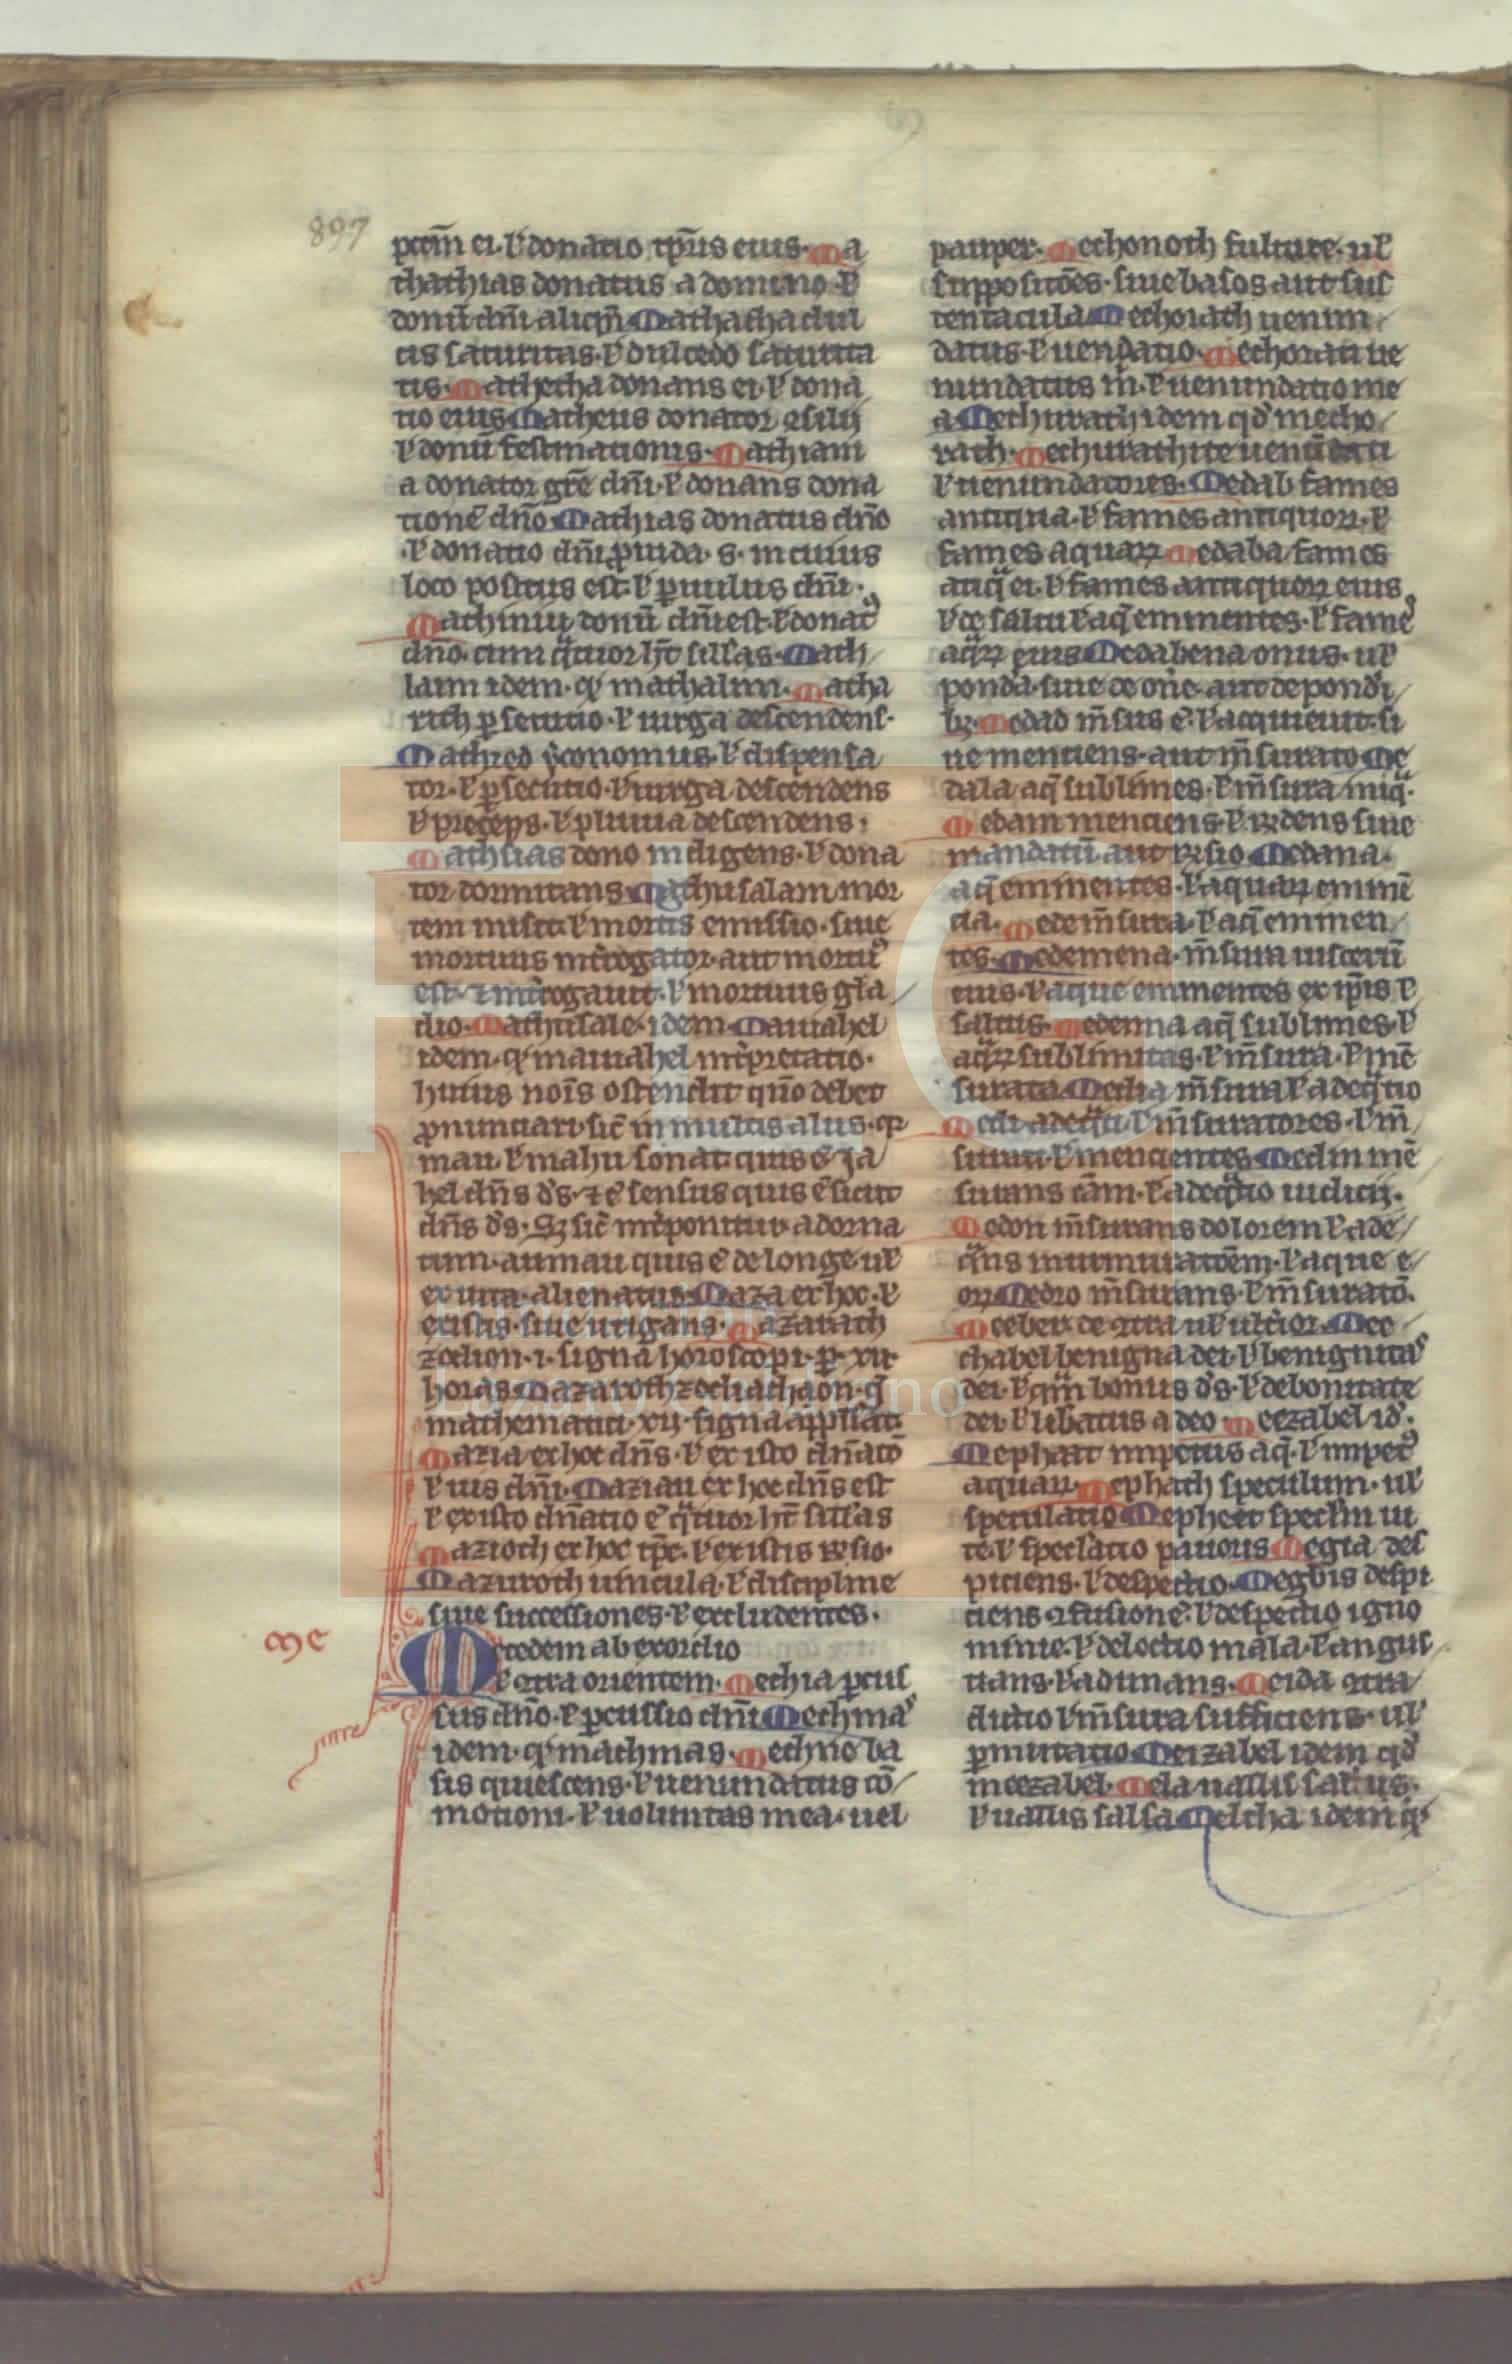 897
pctm̄ ei · ł donatio tp̄ris eius · Ma
thathias donatus a domino · ł
donū dn̄i aliqm̄ Mathatha dul
cis saturitas · ł dulcedo saturita
tis · Mathetha donans ei · ł dona
tio eius Matheus donator
ł donū festinationis · Mathani
a donator gr̄e dn̄i · ł donans dona
tionē dn̄o Mathias donatus dn̄o
· ł donatio dn̄i ꝓuida · s · in cuius
loco positus est · ł ꝑuulus dn̄i ·
Mathiniu donū dn̄i est · ł donatꝰ
dn̄o · cum qͣtuor hr̄t sill̄as · Math
laim idem · qͩ mathalim · Matha
rith ꝑsecutio · ł uirga descendens ·
Mathred yconomus · ł dispensa
tor · ł ꝑsecutio · ł uirga descendens
ł preceps · ł pluuia descendens ·
Mathsias dono indigens · ł dona
tor dormitans · Mathusalam mor
tem misit · ł mortis emissio · siue
mortuus int̄rogator · aut mortuꝰ
est · ⁊ int̄rogauit · ł mortuus gla
dio · Mathusale · idem · Mauiahel
idem · qͩ mauiahel int̄pretatio ·
huius nois̄ ostendit qn̄o debet
ꝓnunciari · sic̄ in multis aliis · qꝛ
mau · ł mahu sonat quis ē · ia
hel dn̄s ds̄ · ⁊ ē sensus quis ē sicut
dn̄s ds̄ · Sꝫ sic̄ int̄ponitur a dorna
tum · aumau quis ē de longe ul̄
ex uita · alienatus · Maza ex hoc · ł
ex istis · siue irrigans · Mazarath
zodion · i · signa horoscopi · ꝑ · xii ·
horas Mazaroth
mathematici · xii · signa app̄llāt
Mazia ex hoc dn̄s · ł ex isto dn̄atō
ł uis dn̄i · Maziau ex hoc dn̄s est
ł ex isto dn̄atio ē qͣtuor hr̄t sill̄as
Mazioth ex hoc tp̄e · ł ex istis ꝟsio ·
Mazuroth uincula · ł discipline
siue successiones · ł excludentes ·
me
Mecedem ab exordio
ł ꝯtra orientem · Mechia ꝑcus
sus dn̄o · ł ꝑcussio dn̄i Mechmaˢ
idem · qͩ machmas · Mechno ba
sis quiescens · ł uenundatus cō
motioni · ł uoluntas mea · uel
pauper · Mechonoth fulture · ul̄
suppositōes · siue basos aut sus
tentacula Mechorath uenun
datus · ł uendatio · Mechorati ue
nundatus m̄ · ł uenundatio me
a Mechurath idem qd̄ mecho
rath · Mechurathite uenūdati
ł uenundatores · Medab fames
antiqua · ł fames antiquoꝝ · ł
fames aquaꝝ Medaba fames
atiqͣ ei · ł fames antiquoꝝ eius
ł de saltu ł aq̄ eminentes · ł fameˢ
aqͣꝝ eius Medabena onus · ul̄
ponda · siue de on̄e · aut de pondi
bꝫ · Medad m̄sus ē · ł acquieuit · si
ue mentiens · aut m̄surato Me
dala aq̄ sublimes · ł m̄sura iniqͣ ·
Medam mentiens · ł rīdens siue
mandatū aut ꝟsio Medana ·
aq̄ eminentes · ł aquaꝝ eminē
cia · Mede m̄sura · ł aq̄ eminen
tes · Medemena · m̄sura uiscerū
eius · ł aque eminentes ex ip̄is ł
saltus · Medenna aq̄ sublimes · ł
aqͣꝝ sublimitas · ł m̄sura · ł mē
surata Media m̄sura ł adeqͣtio
Medi adeqͣti · ł m̄suratores · ł m̄
surati · ł mencientes Medin mē
surans cām · ł adeqͣtio iudicij ·
Medon m̄surans dolorem ł ade
qͣns murmuratōem · ł aque e
oꝝ Medro m̄surans · ł m̄suratō ·
Meeber de ꝯtra ul̄ ult̄ior Mee
thabel benigna dei · ł benignitaˢ
dei · ł qͣm bonus ds̄ · ł de bonitate
dei · ł libatus a deo · Meezabel id̄ ·
Mephaat impetus aq̄ · ł impetꝰ
aquaꝝ · Mephath speculum · ul̄
speculatio Mepheat specl̄m ui
te · ł specl̄atio pauoris Megia des
piciens · ł despectio · Megbis despi
ciens ꝯfusionē · ł despectio igno
minie · ł delectio mala · ł angus
tians · ł adunans · Meida ꝯtra
dictio ł m̄sura sufficiens · ul̄
ꝑmutatio Meizabel idem qd̄
meezabel · Mela uallis salsus ·
ł uallis salsa Melcha idem qͩ